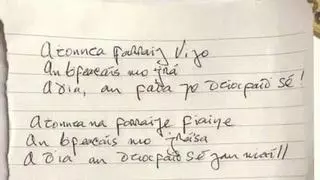 A tonnta farraig Vigo
An bfeacais mo grá
A dia, an fada go dtiocfaid sé!
A tonnta na farraige fiaine
An bfeacais mo grása
A dia an dtiocfaid sé gan moill!!